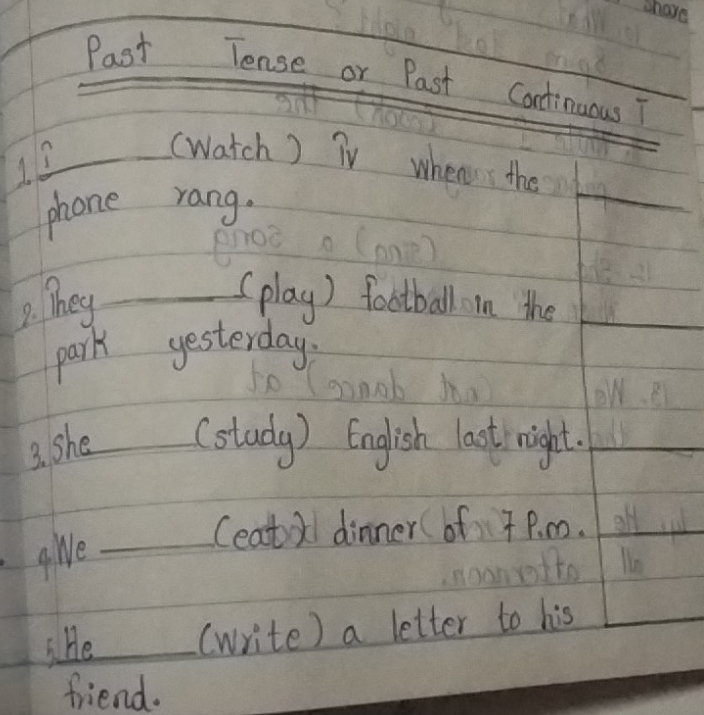 Share
Past Tense or Past Continuous T
1. I ______ (Watch) Tv when the
phone rang.
2. They ______ (play) football in the
park yesterday.
3. She ______ (study) English last night.
4. We ______ (eat) dinner of 7 P.m.
5. He ______ (write) a letter to his
friend.